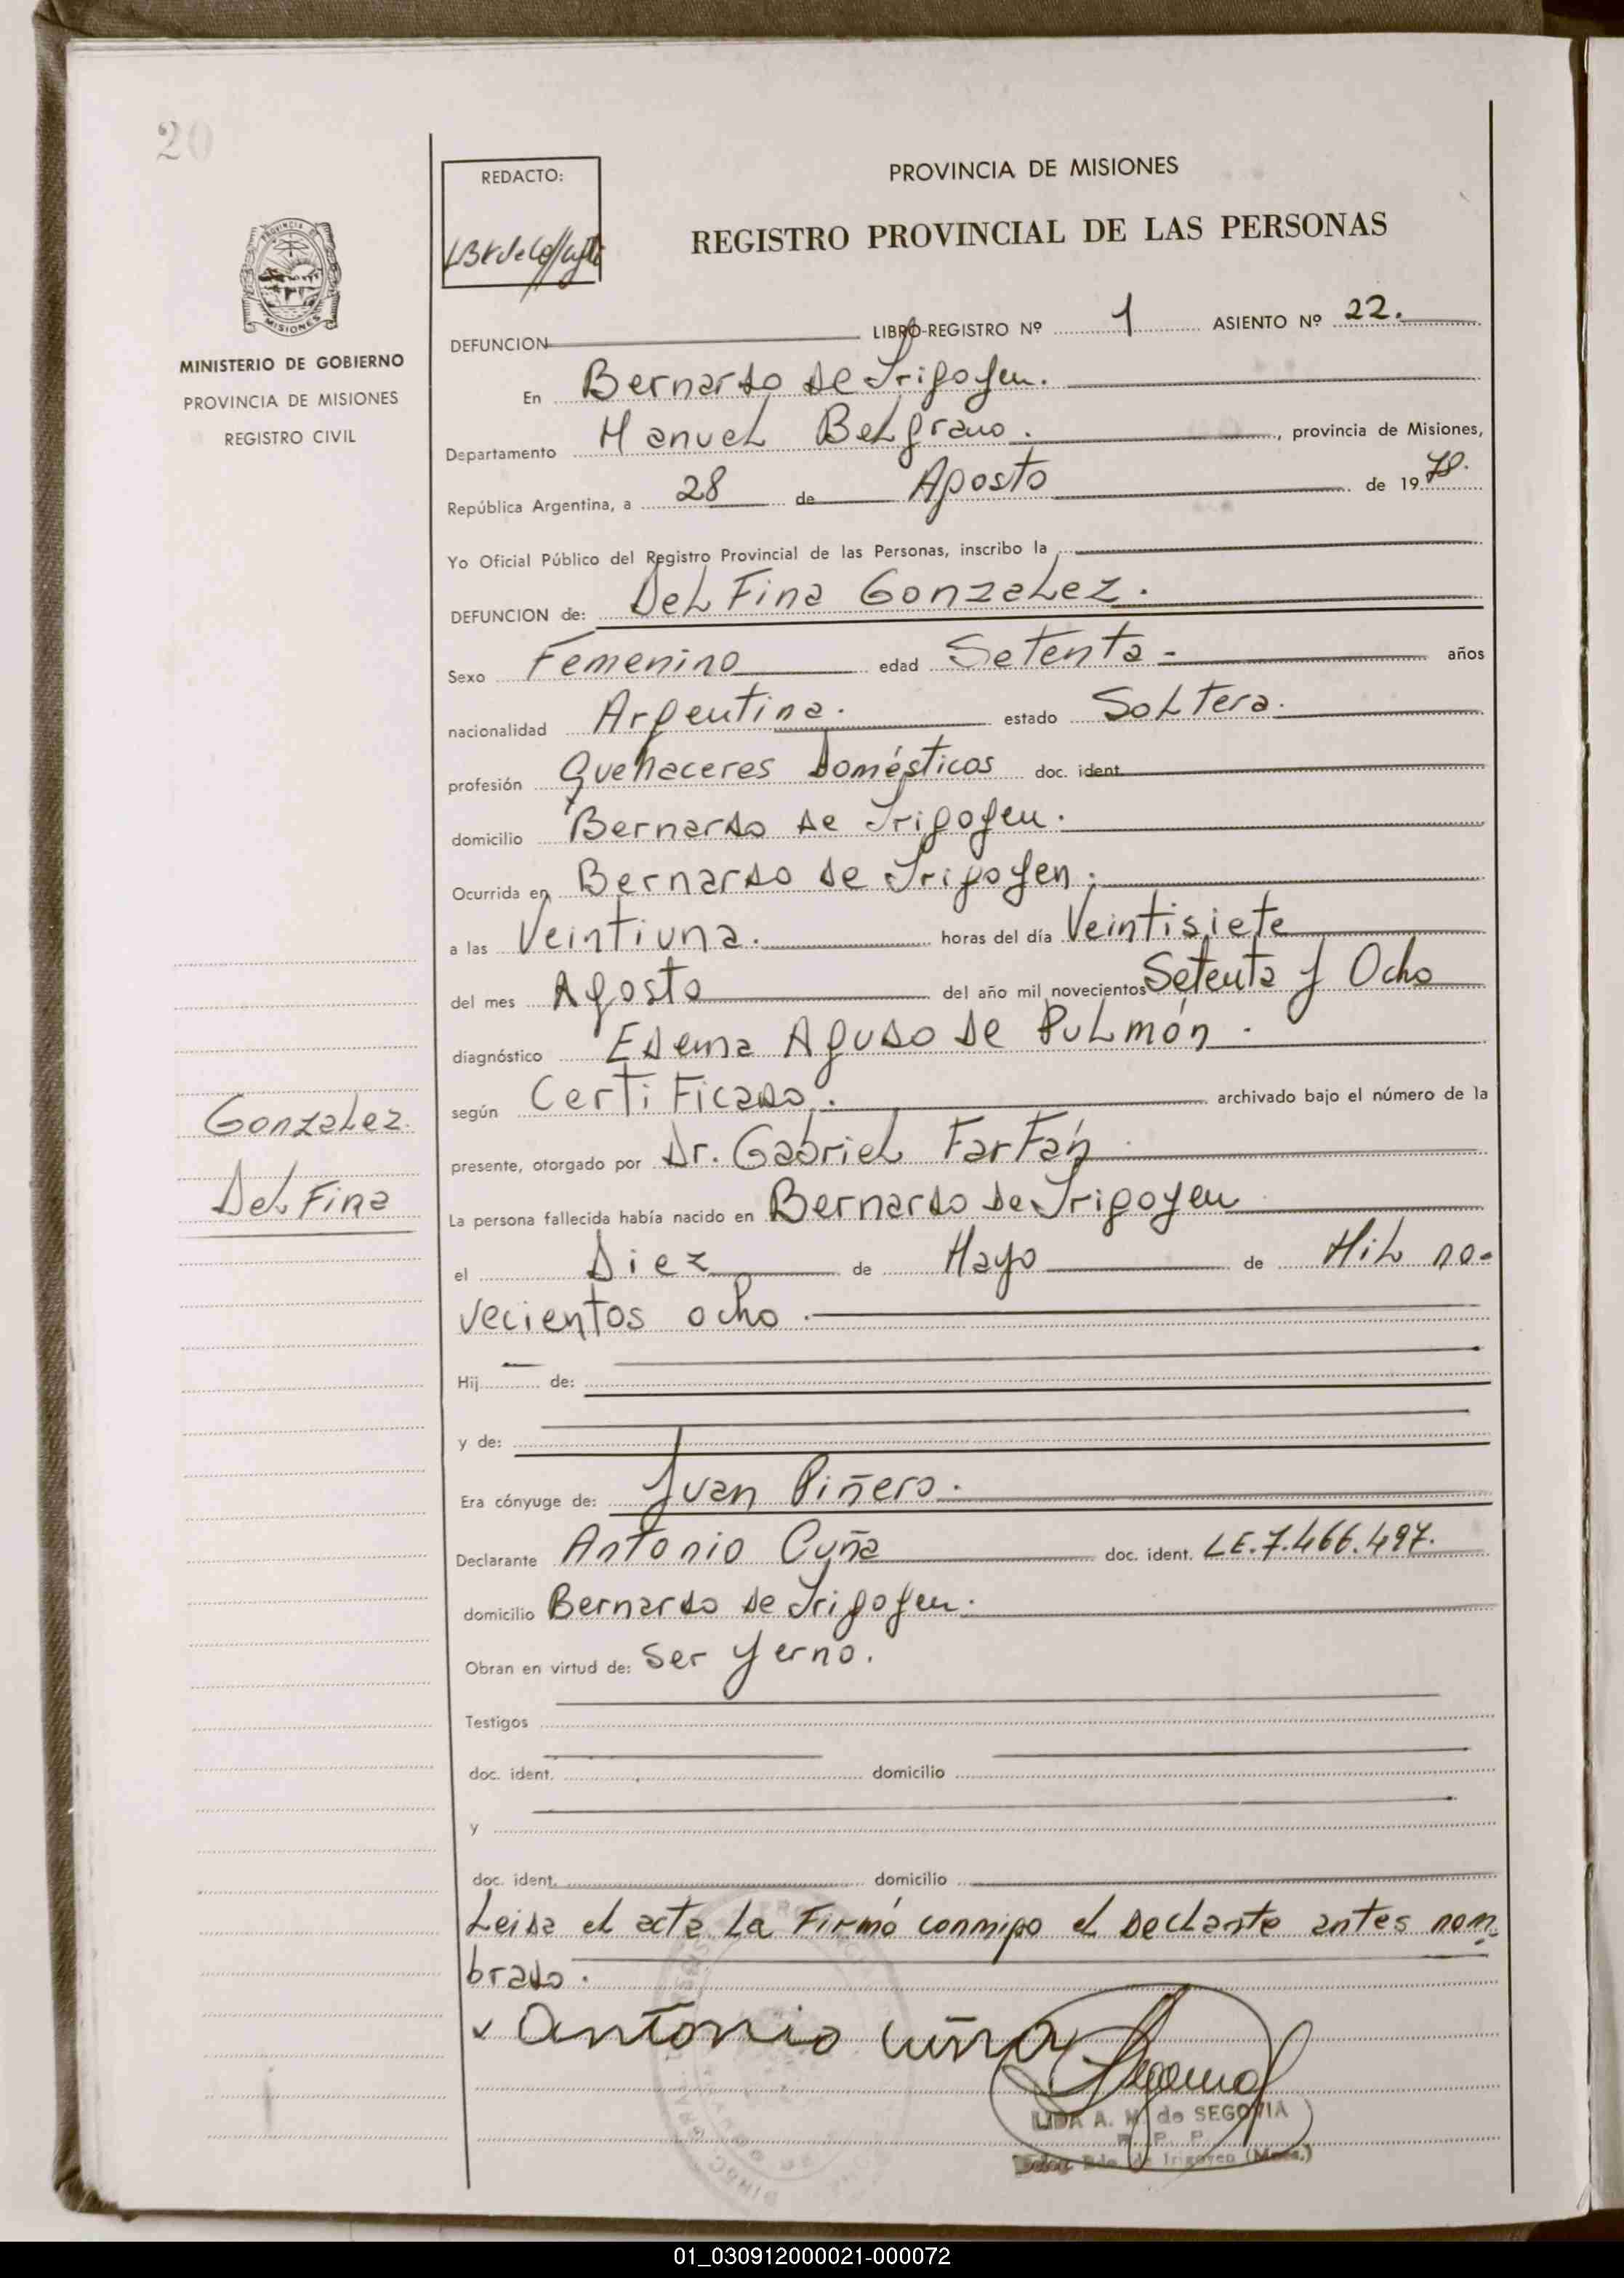 20
REDACTO:
PROVINCIA DE MISIONES
REGISTRO PROVINCIAL DE LAS PERSONAS
MISIONES
MINISTERIO DE GOBIERNO
PROVINCIA DE MISIONES
REGISTRO CIVIL
DEFUNCION LIBRO-REGISTRO Nº 1 ASIENTO Nº 22.
En Bernardo de Irigoyen.
Departamento Manuel Belgrano., provincia de Misiones,
República Argentina, a 28 de Agosto de 1978.
Yo Oficial Público del Registro Provincial de las Personas, inscribo la
DEFUNCION de: Delfina Gonzalez.
Sexo Femenino edad Setenta - años
nacionalidad Argentina. estado Soltera.
profesión Quehaceres Domésticos doc. ident.
domicilio Bernardo de Irigoyen.
Ocurrida en Bernardo de Irigoyen.
a las Veintiuna. horas del día Veintisiete
del mes Agosto del año mil novecientos Setenta y Ocho
diagnóstico Edema Agudo de Pulmón.
según Certificado. archivado bajo el número de la
presente, otorgado por Dr. Gabriel Farfán
La persona fallecida había nacido en Bernardo de Irigoyen
el Diez de Mayo de Mil no-
vecientos ocho.
Hij de:
y de:
Era cónyuge de: Juan Piñero.
Declarante Antonio Cuña doc. ident. LE. 7.466.497.
domicilio Bernardo de Irigoyen.
Obran en virtud de: Ser yerno.
Testigos
doc. ident. domicilio
y
doc. ident. domicilio
Leida el acta la Firmó conmigo el Declante antes nom-
brado.
Gonzalez
Delfina
Antonio Cuña
LIDA A. M. de SEGOVIA
R. P. P.
Bdo. de Irigoyen (Mnes.)
01_030912000021-000072